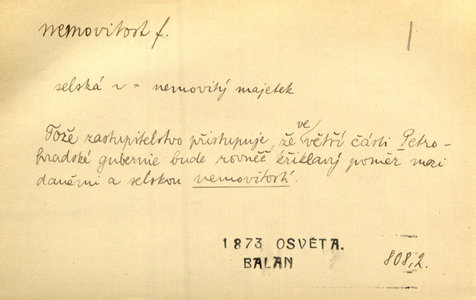 nemovitost f.
selská ~ = nemovitý majetek
Tože zastupitelstvo přistupuje, že ve větší části Petro-
hradské gubernie bude rovněž křiklavý poměr mezi
daněmi a selskou nemovitostí.
1873 OSVĚTA.
BALAN
808,2.